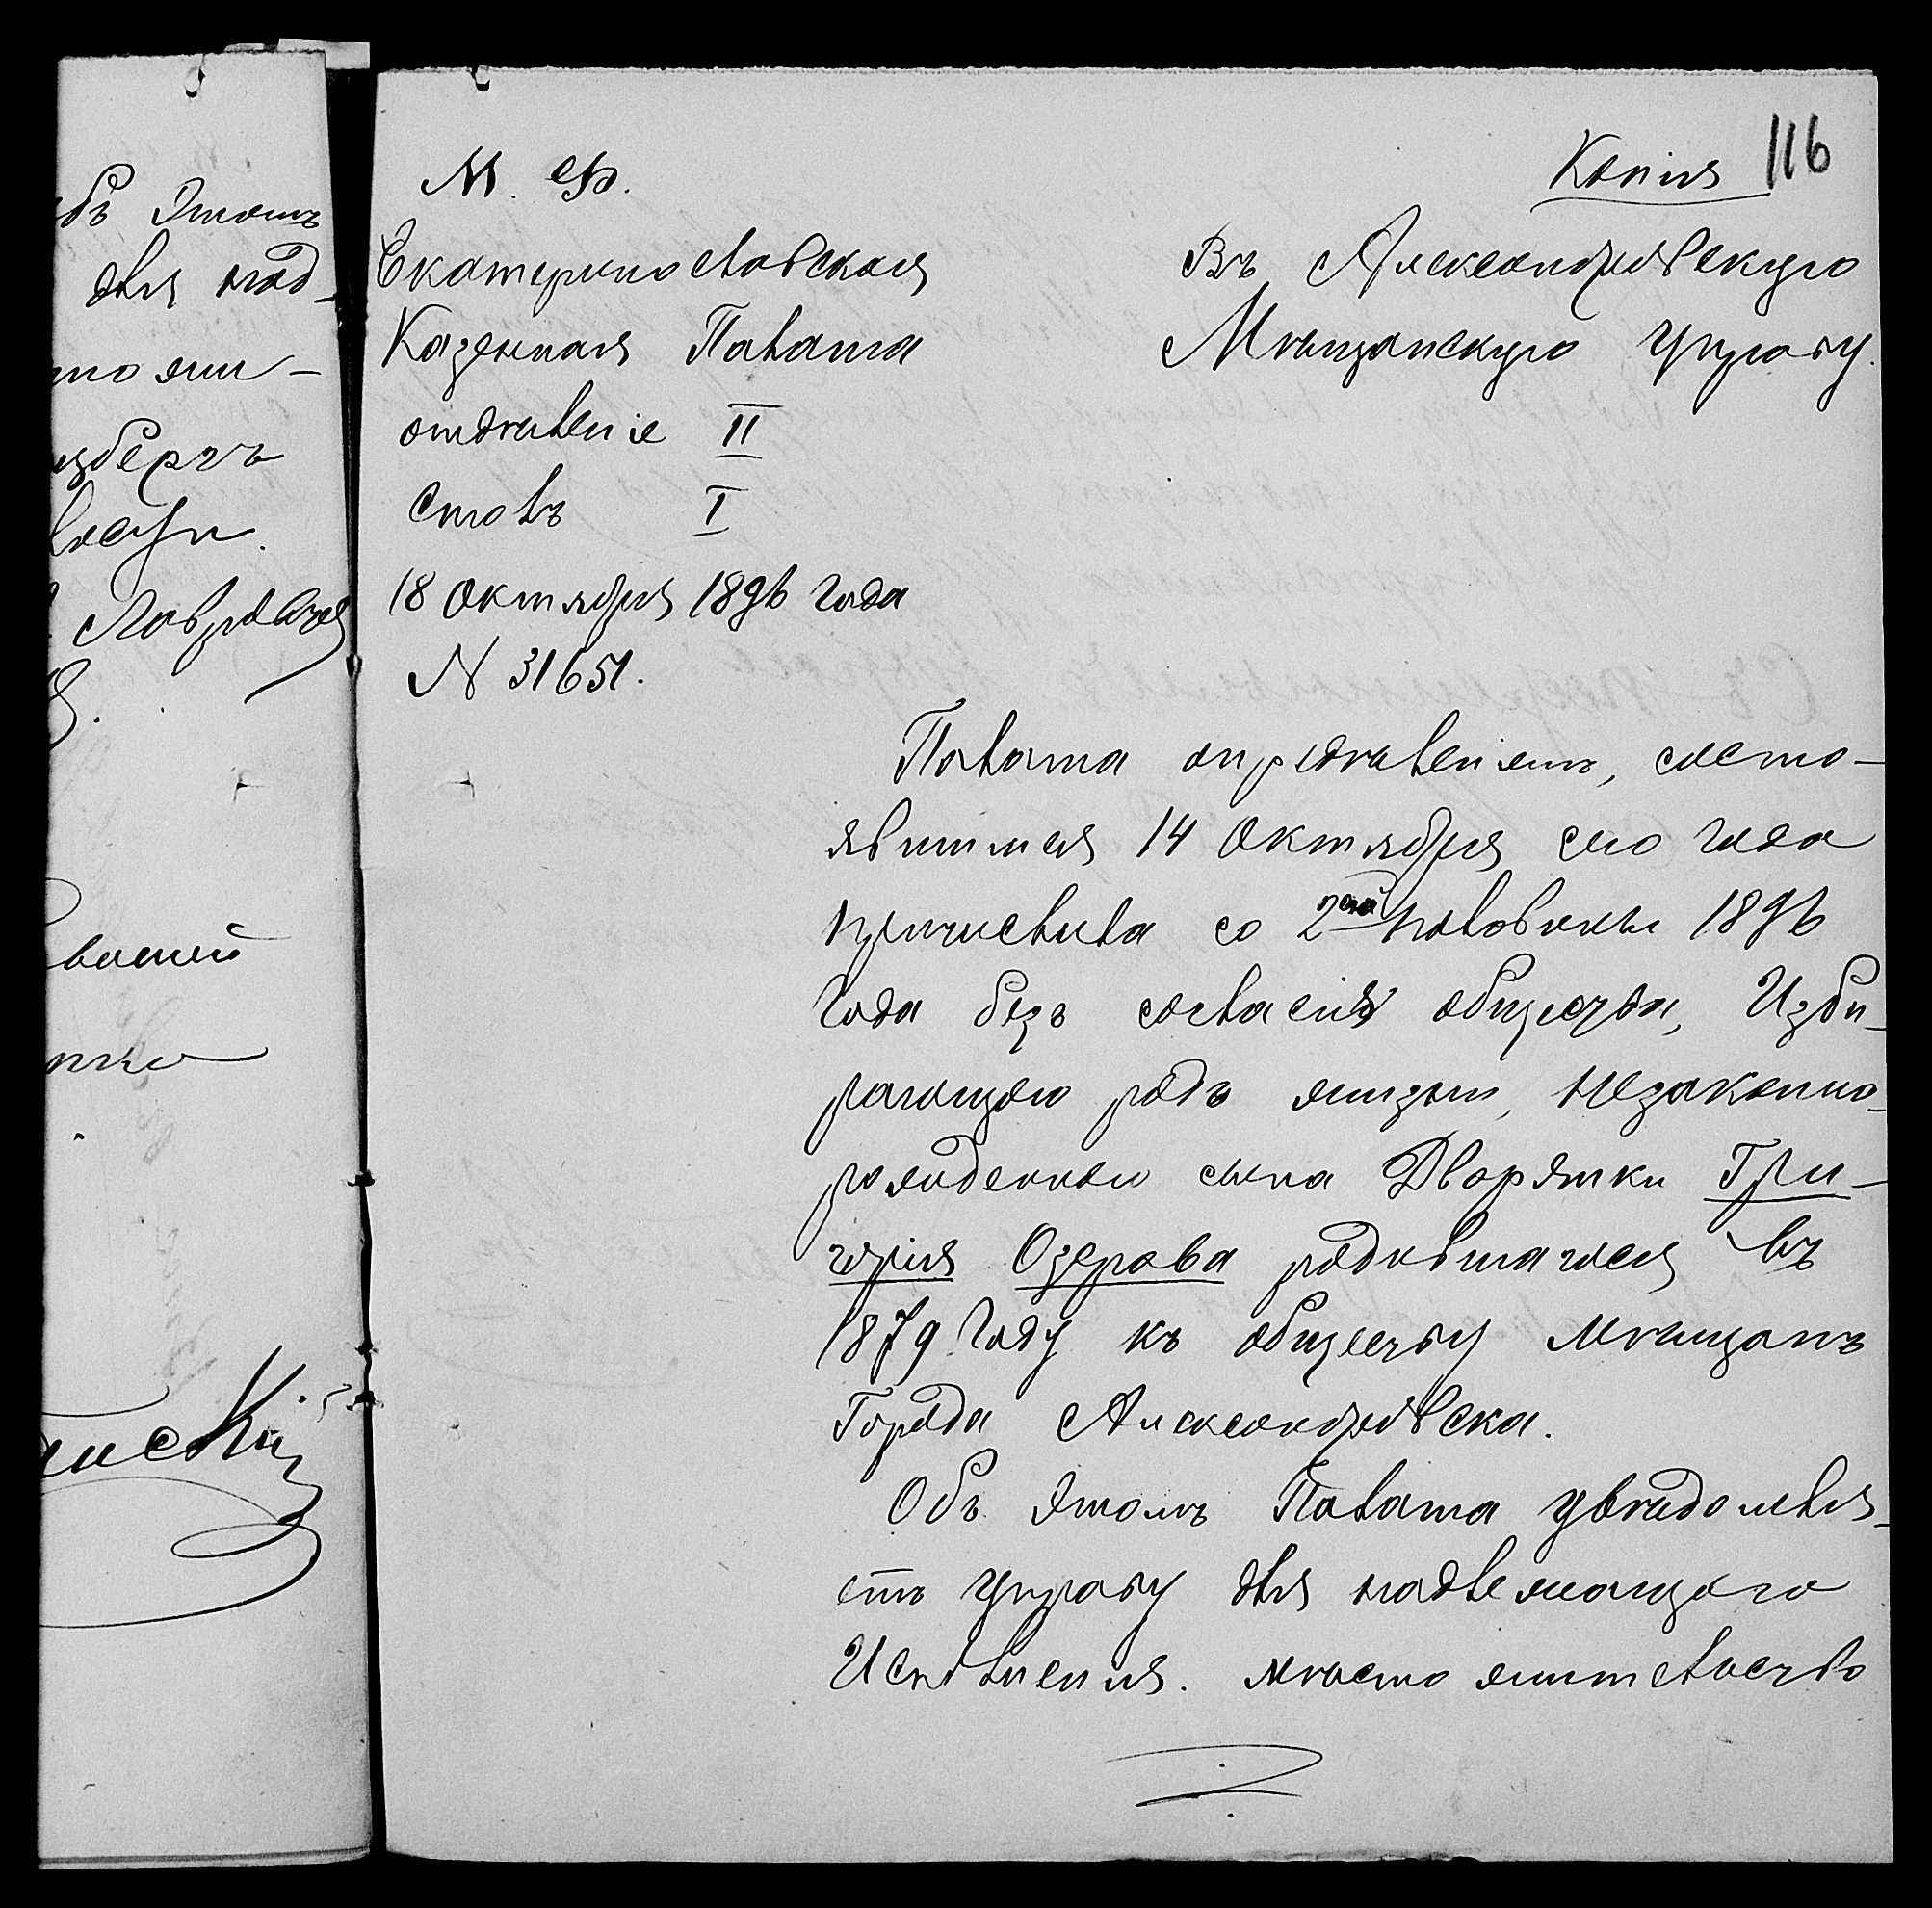 бъ этомъ
для над-
то жи-
Лаврова
116
Копія
М. Ф.
Екатеринославская
Казенная Палата
отдѣленіе II
столъ I
18 октября 1896 года
N 31651.
Въ Александровскую
Мѣщанскую Управу.
Палата опредѣленіемъ, состо-
явшимся 14 октября сего года
причислила со 2ой половины 1896
года безъ согласія общества, Изби-
рающаго родъ жизни, незаконно-
рожденнаго сына Дворянки Гри-
горія Озерова родившагося въ
1879 году къ обществу мѣщанъ
Города Александровска.
Объ этомъ Палата увѣдомля-
етъ Управу для надлежащаго
Исполненія. мѣсто жительство